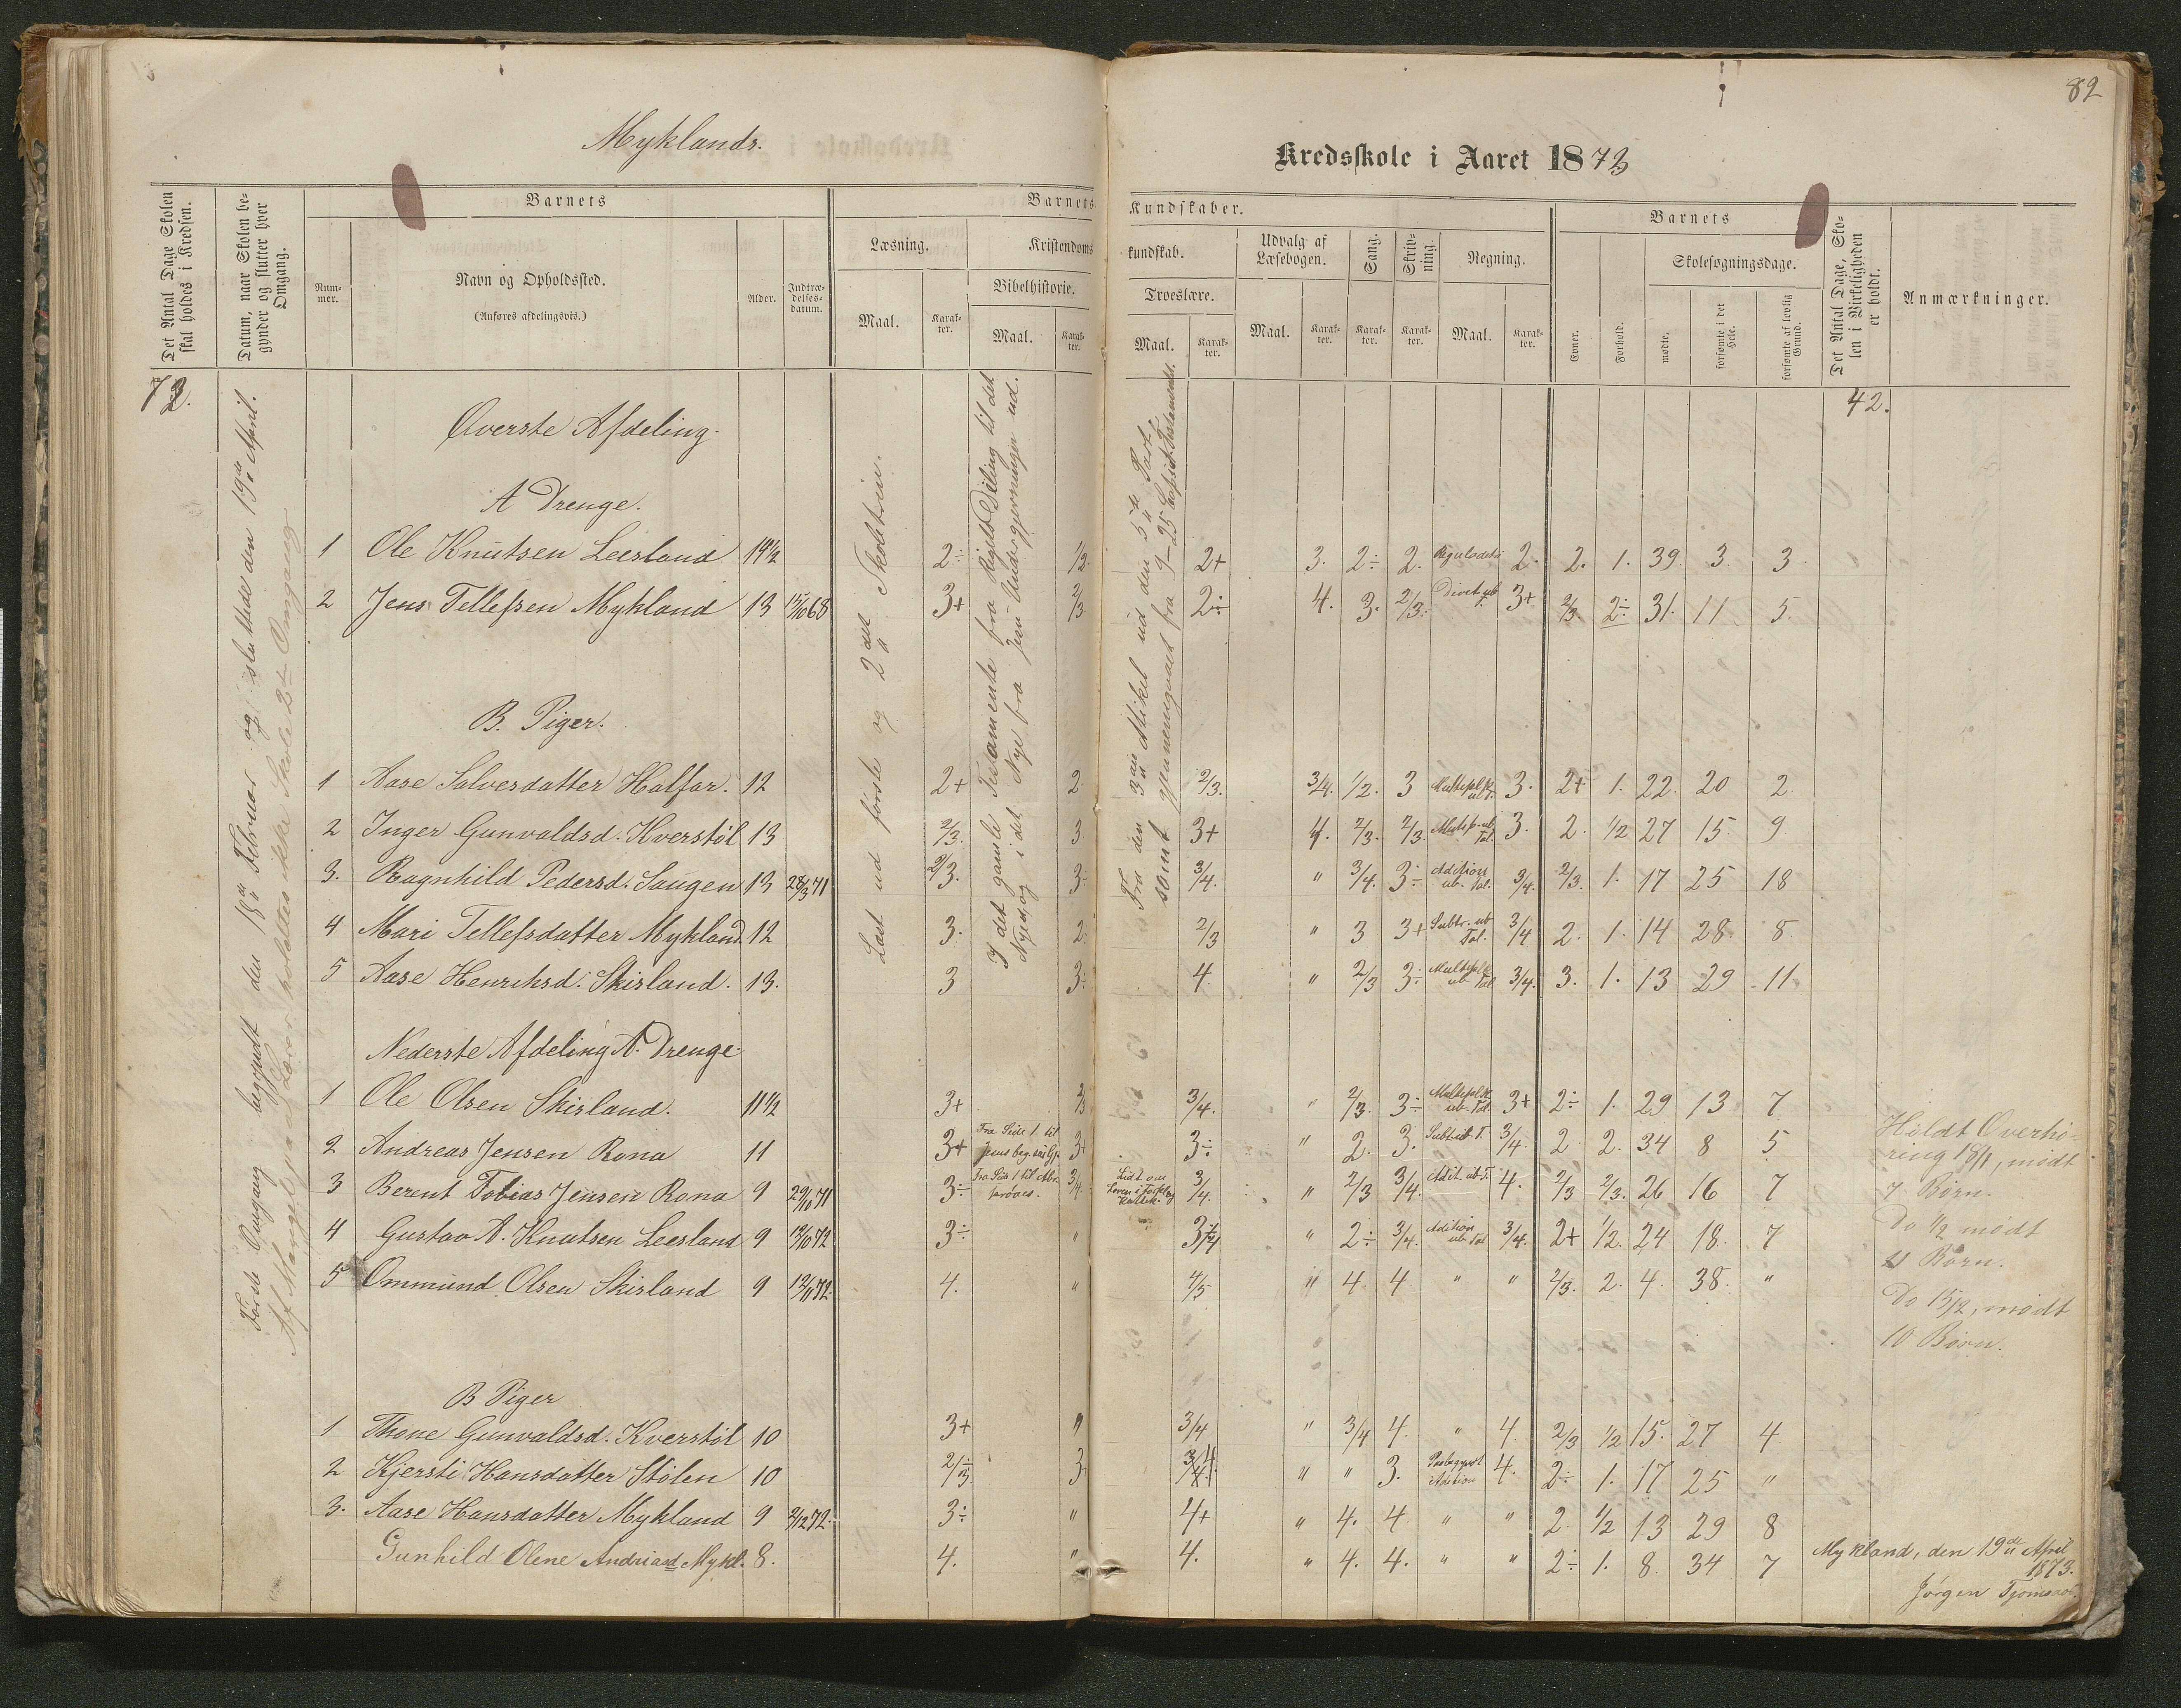 82
Myklands.
Kredsskole i Aaret 1873
Det Antal Dage Skolen skal holdes i Kredsen.
Datum, naar Skolen begynder og slutter hver Omgang.
Barnets
Num-mer.
Navn og Opholdssted.
(Anføres afdelingsvis.)
Alder.
Indtræ-delses-datum.
Barnets Kundskaber.
Læsning.
Maal.
Karak-ter.
Kristendomskundskab.
Bibelhistorie.
Maal.
Karak-ter.
Troeslære.
Maal.
Karak-ter.
Udvalg af Læsebogen.
Maal.
Karak-ter.
Sang.
Karak-ter.
Skriv-ning.
Karak-ter.
Regning.
Maal.
Karak-ter.
Barnets
Evner.
Forhold.
Skolesøgningsdage.
mødte.
forsømte i det Hele.
forsømte af lovlig Grund.
Det Antal Dage, Skolen i Virkeligheden er holdt.
Anmærkninger.
72.
42.
Første Omgang begyndt den 18de Februar og sluttede den 19de April.
Af Mangel paa Lærer holdtes ikke Skole 2den Omgang
Læst ud første og 2det Skoletrin.
I det gamle Testamente fra Rigets Deling til det
Nye, og i det Nye fra Jesu Undergjerninger ud.
Fra den 3die Artikel ud den 5te Part,
samt gjennemgaaet fra
Øverste Afdeling.
A Drenge.
1 Ole Knutsen Leesland 14½ 2÷ ½. 2+ 3. 2÷ 2. Reguladetri 2. 2. 1. 39. 3. 3.
2 Jens Tellefsen Mykland 13 15/10 68 3+ 2/3 2÷ 4. 3. 2/3. 3+ 2/3. 2÷ 31. 11 5.
B. Piger.
1 Aase Salvesdatter Halfar. 12 2+ 2. 2/3. 3/4. ½. 3 Multiplk. ub. T. 3. 2+ 1. 22. 20 2
2 Inger Gunvaldsd. Kverstöl 13 2/3. 3 3+ 4. 2/3. 2/3. Multip. ub. Tal. 3. 2. ½ 27 15. 9
3. Ragnhild Pedersd. Saugen 13 28/3 71 2/3. 3. 3/4. " 3/4. 3÷ Addition ub. Tal. 3/4. 2/3. 1. 17 25 18
4 Mari Tellefsdatter Mykland 12 3. 2. 2/3 " 3 3+ Subtr. ub Tal. 3/4 2. 1. 14 28. 8.
5 Aase Henriksd. Skisland. 13. 3 3÷ 4. " 2/3 3÷ Multiplk ub. Tal 3/4. 3. 1. 13 29 11
Nederste Afdeling A. Drenge
1 Ole Olsen Skisland. 11½ 3+ 2/3 3/4. " 2/3. 3÷ Multiplk. ub. Tal. 3+ 2÷ 1. 29 13 7
2 Andreas Jensen Rona 11 3+ Fra Side 1 til 3+ 3÷ " 2. 3. Subt. ub. T. 3/4. 2 2. 34 8 5
3 Berent Tobias Jensen Rona 9 29/10 71 3÷ Fra Side 1 til 3/4. 3/4. " 2/3 3/4. Adit. ub. T. 4. 2/3 2/3. 26 16 7
4 Gustav A. Knutsen Leesland 9 3÷ " " 2÷ 3/4. Adition ub. Tal 3/4. 2+ ½. 24 18. 7
5 Ommund Olsen Skisland 9 4. " 4/5 " 4 4. " " 2/3. 2. 4. 38. "
B Piger
1 Thone Gunvaldsd. Kverstöl 10 3+ " 3/4 " 3/4 4. " 4. 2/3 ½ 15. 27 4
2 Kjersti Hansdatter Stölen 10 3 " " 3. Paabegyndt Adition 4. 2÷ 1. 17 25 "
3. Aase Hansdatter Mykland 9 2/12 72. 3÷ " 4+ " 4. 4. " " 2. ½ 13 29 8
Gunhild Olene Andriasd Mykl. 8. 4. " 4. " 4. 4. " " 2÷ 1. 8. 34 7
Holdt Overhø-
ring 18/1, mødt
7 Børn.
Do 1/2 mødt
11 Børn.
Do 15/2, mødt
10 Børn.
Mykland, den 19de April
1873.
Jörgen